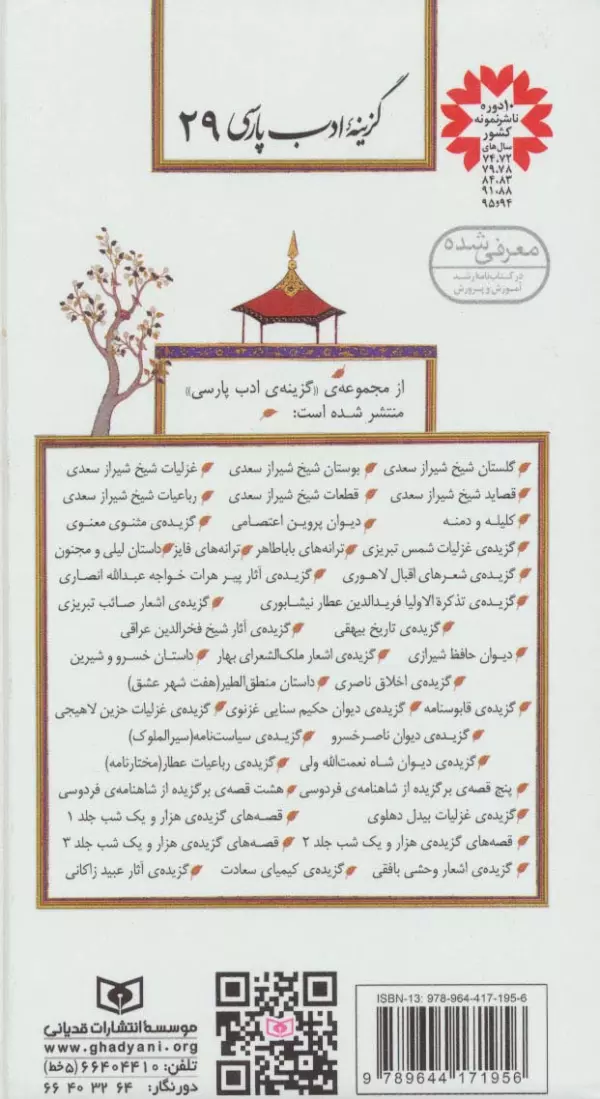 گزینهٔ ادب پارسی ۲۹
۱۰دوره
ناشرنمونه
کشور
سال‌های
۷۴،۷۲
۷۹،۷۸
۸۴،۸۳
۹۱،۸۸
۹۴و۹۵
معرفی شده
در کتاب‌نامه رشد
آموزش و پرورش
از مجموعه‌ی «گزینه‌ی ادب پارسی»
منتشر شده است:
گلستان شیخ شیراز سعدی بوستان شیخ شیراز سعدی غزلیات شیخ شیراز سعدی
قصاید شیخ شیراز سعدی قطعات شیخ شیراز سعدی رباعیات شیخ شیراز سعدی
کلیله و دمنه دیوان پروین اعتصامی گزیده‌ی مثنوی معنوی
گزیده‌ی غزلیات شمس تبریزی ترانه‌های باباطاهر ترانه‌های فایز داستان لیلی و مجنون
گزیده‌ی شعرهای اقبال لاهوری گزیده‌ی آثار پیر هرات خواجه عبدالله انصاری
گزیده‌ی تذکرة الاولیا فریدالدین عطار نیشابوری گزیده‌ی اشعار صائب تبریزی
گزیده‌ی تاریخ بیهقی گزیده‌ی آثار شیخ فخرالدین عراقی
دیوان حافظ شیرازی گزیده‌ی اشعار ملک‌الشعرای بهار داستان خسرو و شیرین
گزیده‌ی اخلاق ناصری داستان منطق‌الطیر(هفت شهر عشق)
گزیده‌ی قابوسنامه گزیده‌ی دیوان حکیم سنایی غزنوی گزیده‌ی غزلیات حزین لاهیجی
گزیده‌ی دیوان ناصرخسرو گزیده‌ی سیاست‌نامه(سیرالملوک)
گزیده‌ی دیوان شاه نعمت‌الله ولی گزیده‌ی رباعیات عطار(مختارنامه)
پنج قصه‌ی برگزیده از شاهنامه‌ی فردوسی هشت قصه‌ی برگزیده از شاهنامه‌ی فردوسی
گزیده‌ی غزلیات بیدل دهلوی قصه‌های گزیده‌ی هزار و یک شب جلد ۱
قصه‌های گزیده‌ی هزار و یک شب جلد ۲ قصه‌های گزیده‌ی هزار و یک شب جلد ۳
گزیده‌ی اشعار وحشی بافقی گزیده‌ی کیمیای سعادت گزیده‌ی آثار عبید زاکانی
موسسه انتشارات قدیانی
www.ghadyani.org
تلفن: ۶۶۴۰۴۴۱۰ (۵خط)
دورنگار: ۶۶ ۴۰ ۳۲ ۶۴
ISBN-13: 978-964-417-195-6
9 789644 171956